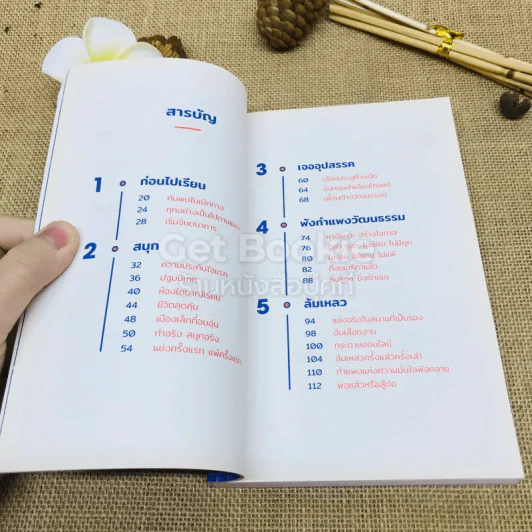 สารบัญ
1 ก่อนไปเรียน
20 ค้นพบในนิตยสาร
24 ทุกอย่างเป็นไปตามแผน
28 เริ่มจินตนาการ
2 สนุก
32 ความประทับใจแรก
36 ปฐมนิเทศ
40 ห้อง(อยาก)เรียน
44 ชีวิตสุดคุ้ม
48 เมืองเล็กที่อบอุ่น
50 ทำจริง สนุกจริง
54 แข่งครั้งแรก แพ้ครั้งแรก
3 เจออุปสรรค
60
64
68 เพื่อนต่างวัฒนธรรม
4 พังกำแพงวัฒนธรรม
74 สร้างโอกาส
76
80
82 ถึงอเมริกาแล้ว
88 ยิ่งรักเธอ
5 ล้มเหลว
94 แข่งจริงในสนามที่เป็นรอง
98 ฉันเลือกงาน
100 กระดานออนไลน์
104 ล้มเหลวครั้งแล้วครั้งเล่า
110 กำแพงแห่งความมั่นใจพังทลาย
112 พอแล้วหรือสู้ต่อ
Get Bookie
ร้านหนังสือมีคดี